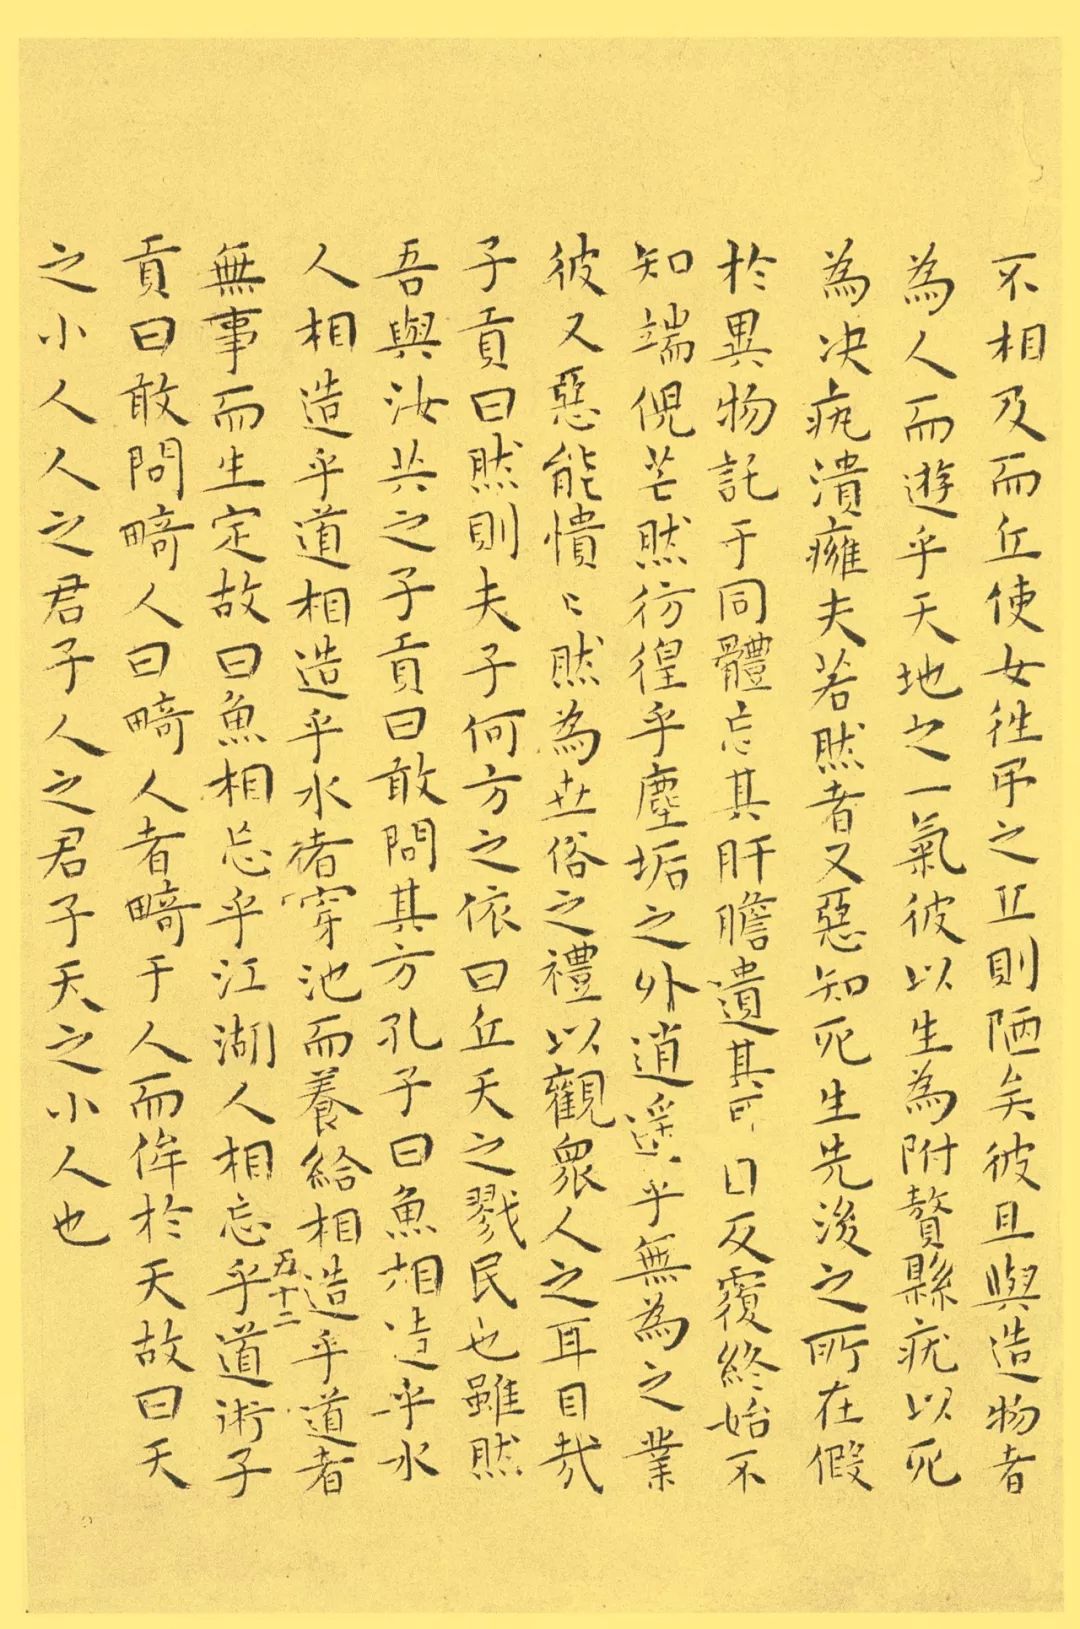 不相及而丘使女徃弔之丘則陋矣彼且與造物者
為人而遊乎天地之一氣彼以生為附贅縣疣以死
為决疣潰癰夫若然者又惡知死生先後之所在假
於異物託于同體忘其肝膽遺其耳目反覆終始不
知端倪芒然彷徨乎塵垢之外逍遥乎無為之業
彼又惡能憒〻然為世俗之禮以觀衆人之耳目哉
子貢曰然則夫子何方之依曰丘天之戮民也雖然
吾與汝共之子貢曰敢問其方孔子曰魚相造乎水
人相造乎道相造乎水者穿池而養給相造乎道者
五十二
無事而生定故曰魚相忘乎江湖人相忘乎道術子
貢曰敢問畸人曰畸人者畸于人而侔於天故曰天
之小人人之君子人之君子天之小人也